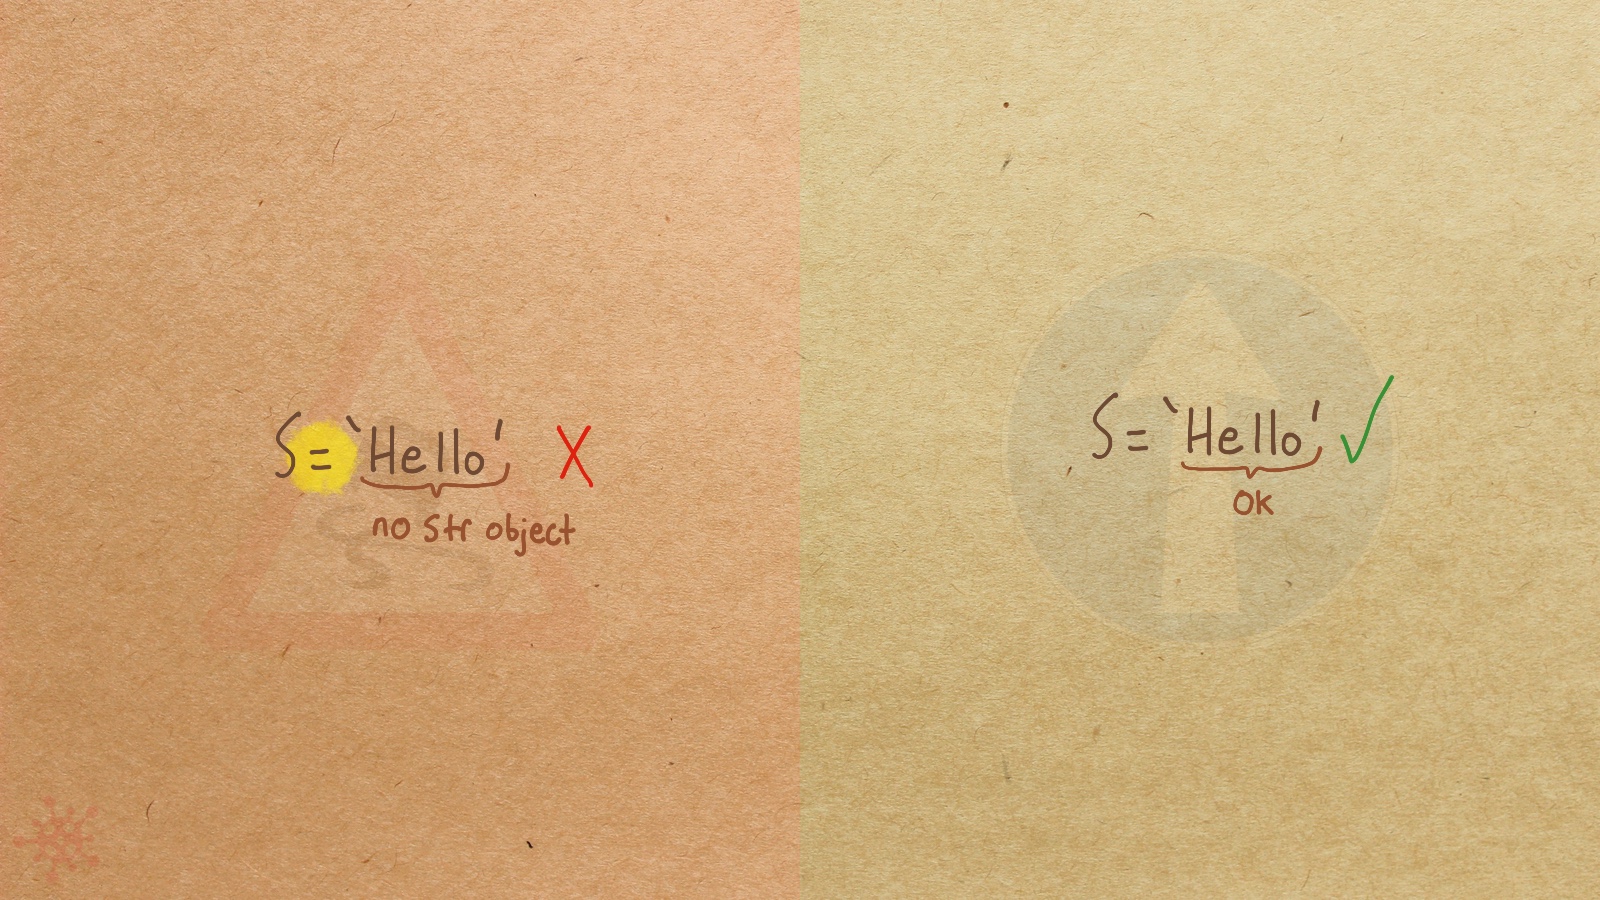 S = ‘Hello’ X
no str object
S = ‘Hello’ ✓
ok